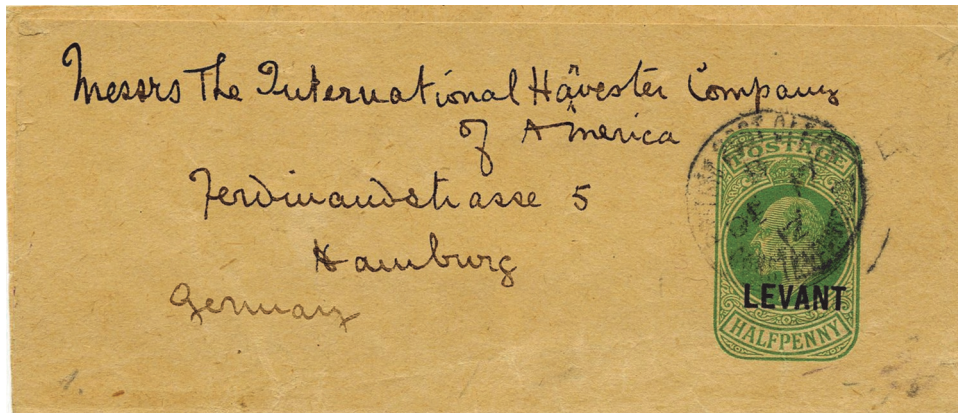 Messrs The International Harvester Company
of America
Ferdinandstrasse 5
Hamburg
Germany
POSTAGE
LEVANT
HALFPENNY